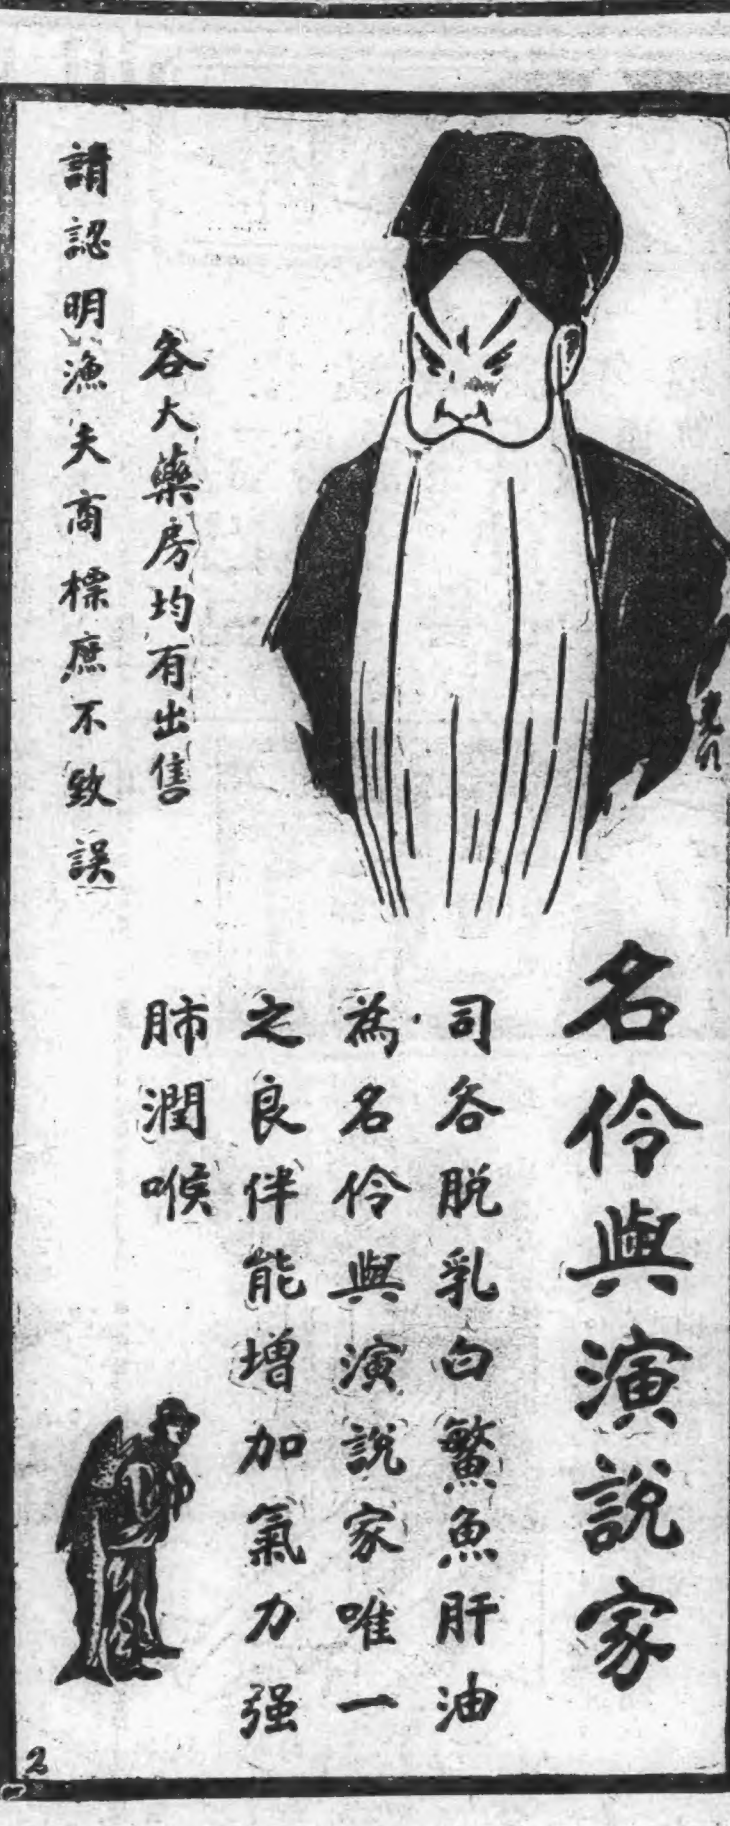 名伶與演說家
司各脱乳白鰵魚肝油
為名伶與演說家唯一
之良伴能增加氣力强
肺潤喉
各大藥房均有出售
請認明漁夫商標庶不致誤
2